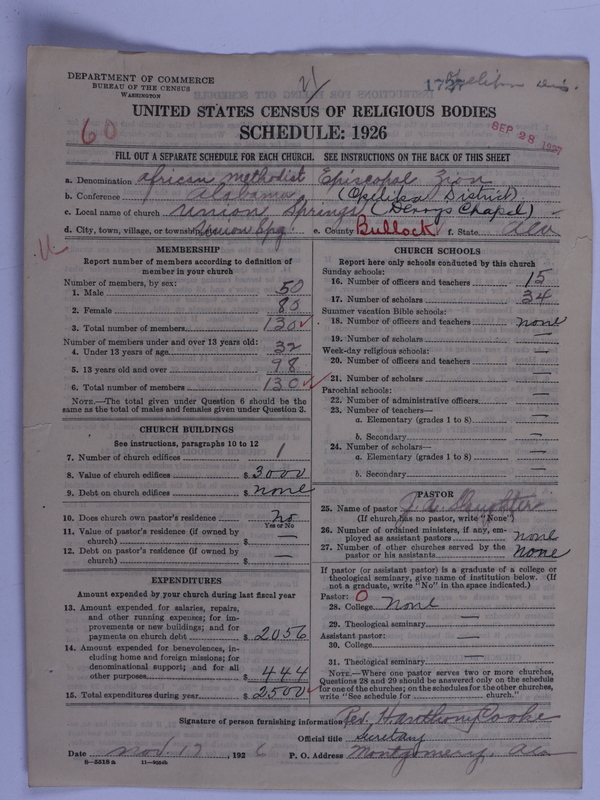 DEPARTMENT OF COMMERCE
BUREAU OF THE CENSUS
WASHINGTON
1727
UNITED STATES CENSUS OF RELIGIOUS BODIES
SCHEDULE: 1926
60
SEP 28 1927
FILL OUT A SEPARATE SCHEDULE FOR EACH CHURCH. SEE INSTRUCTIONS ON THE BACK OF THIS SHEET
a. Denomination African Methodist Episcopal Zion
b. Conference Alabama (Opelika District)
c. Local name of church Union Springs (Derrys Chapel)
d. City, town, village, or township Union Spg. e. County Bullock f. State Ala
MEMBERSHIP
Report number of members according to definition of member in your church
Number of members, by sex:
1. Male 50
2. Female 80
3. Total number of members 130
Number of members under and over 13 years old:
4. Under 13 years of age 32
5. 13 years old and over 98
6. Total number of members 130
NOTE.—The total given under Question 6 should be the same as the total of males and females given under Question 3.
CHURCH BUILDINGS
See instructions, paragraphs 10 to 12
7. Number of church edifices 1
8. Value of church edifices $ 3000
9. Debt on church edifices $ none
10. Does church own pastor's residence No
Yes or No
11. Value of pastor's residence (if owned by church) $ —
12. Debt on pastor's residence (if owned by church) $ —
EXPENDITURES
Amount expended by your church during last fiscal year
13. Amount expended for salaries, repairs, and other running expenses; for improvements or new buildings; and for payments on church debt $ 2056
14. Amount expended for benevolences, including home and foreign missions; for denominational support; and for all other purposes $ 444
15. Total expenditures during year $ 2500
CHURCH SCHOOLS
Report here only schools conducted by this church
Sunday schools:
16. Number of officers and teachers 15
17. Number of scholars 34
Summer vacation Bible schools:
18. Number of officers and teachers none
19. Number of scholars —
Week-day religious schools:
20. Number of officers and teachers —
21. Number of scholars —
Parochial schools:
22. Number of administrative officers —
23. Number of teachers—
a. Elementary (grades 1 to 8) —
b. Secondary —
24. Number of scholars—
a. Elementary (grades 1 to 8) —
b. Secondary —
PASTOR
25. Name of pastor Slaughter
(If church has no pastor, write "None")
26. Number of ordained ministers, if any, employed as assistant pastors none
27. Number of other churches served by the pastor or his assistants none
If pastor (or assistant pastor) is a graduate of a college or theological seminary, give name of institution below. (If not a graduate, write "No" in the space indicated.)
Pastor: 0
28. College None
29. Theological seminary —
Assistant pastor:
30. College —
31. Theological seminary —
NOTE.—Where one pastor serves two or more churches, Questions 28 and 29 should be answered only on the schedule for one of the churches; on the schedules for the other churches, write "See schedule for church."
Signature of person furnishing information Rev. H. Anthony Cooke
Official title Secretary
Date Nov. 12, 1926 P. O. Address Montgomery, Ala